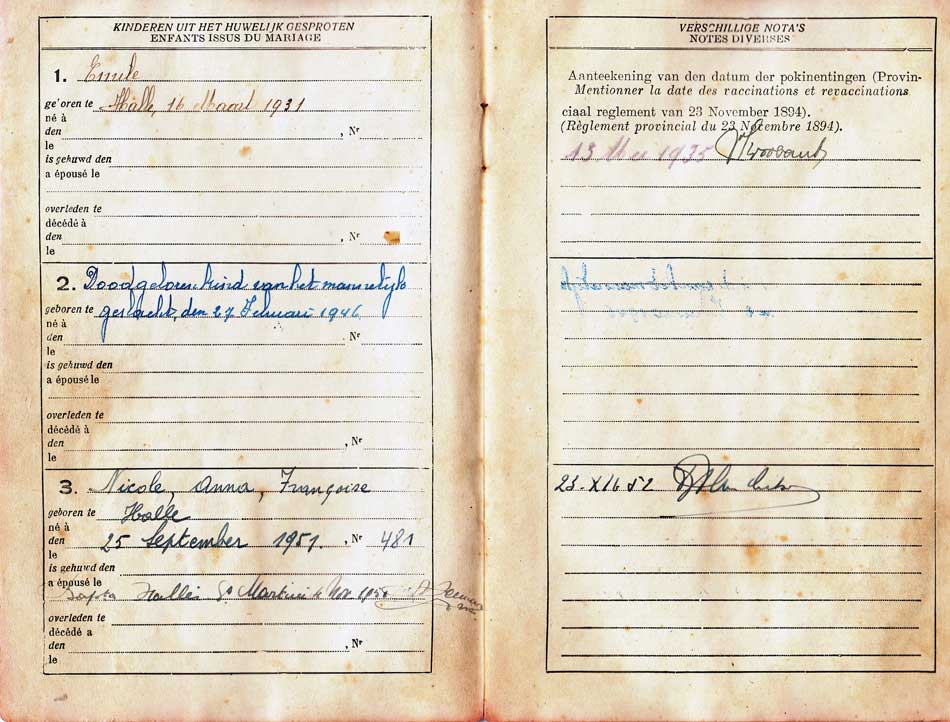 KINDEREN UIT HET HUWELIJK GESPROTEN
ENFANTS ISSUS DU MARIAGE
1. Emile
ge'oren te Halle, 16 Maart 1931
né à
den , Nr
le
is gehuwd den
a épousé le
overleden te
décédé à
den , Nr
le
2. Doodgeboren kind van het mannelijk
geboren te geslacht, den 27 Februari 1946
né à
den , Nr
le
is gehuwd den
a épousé le
overleden te
décédé à
den , Nr
le
3. Nicole, Anna, Françoise
geboren te Halle
né à
den 25 September 1951. , Nr 481
le
is gehuwd den
a épousé le
Halle St Martini Nov
overleden te
décédé a
den , Nr
le
VERSCHILLIGE NOTA'S
NOTES DIVERSES
Aanteekening van den datum der pokinentingen (Provin-
Mentionner la date des vaccinations et revaccinations
ciaal reglement van 23 November 1894).
(Règlement provincial du 23 Novembre 1894).
13 Mei 1935
23-XI 52